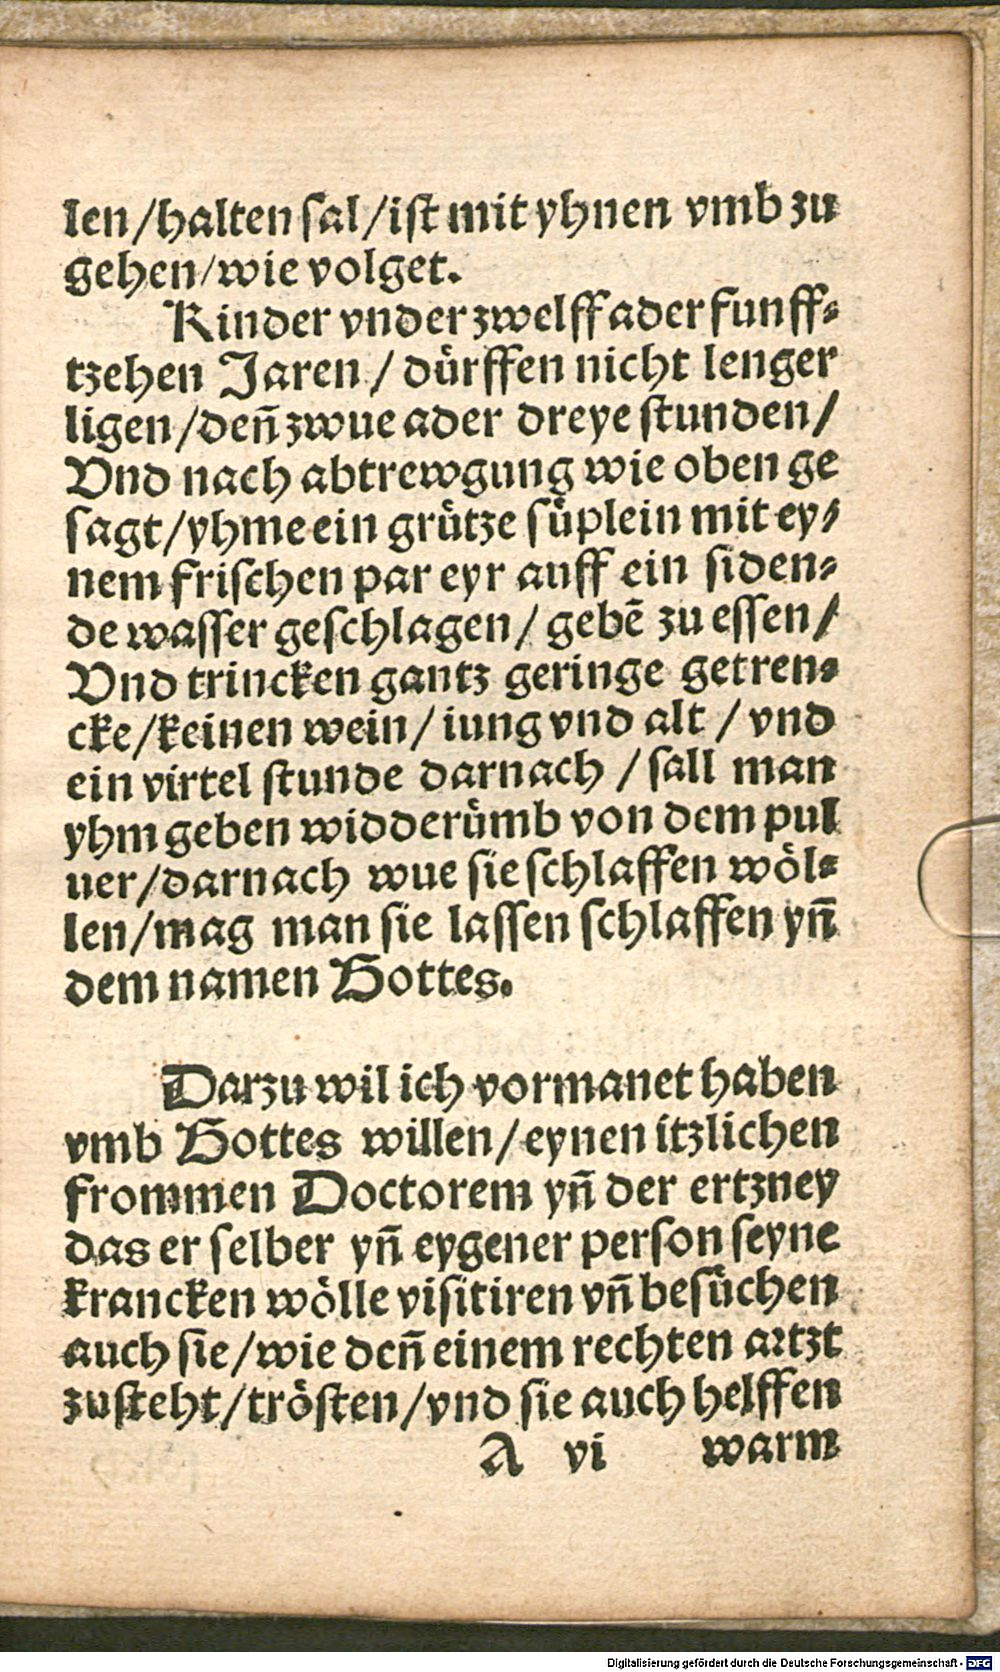 len/halten sal/ist mit yhnen vmb zu
gehen/wie volget.
Kinder vnder zwelff ader funff⸗
tzehen Jaren / dürffen nicht lenger
ligen/deñ zwue ader dreye stunden/
Vnd nach abtrewgung wie oben ge
sagt/yhme ein grütze süplein mit ey⸗
nem frischen par eyr auff ein siden⸗
de wasser geschlagen/ gebē zu essen/
Vnd trincken gantz geringe getren⸗
cke/keinen wein/ iung vnd alt / vnd
ein virtel stunde darnach / sall man
yhm geben widderümb von dem pul
uer/darnach wue sie schlaffen wöl⸗
len/mag man sie lassen schlaffen yñ
dem namen Gottes.
Darzu wil ich vormanet haben
vmb Gottes willen/eynen itzlichen
frommen Doctorem yñ der ertzney
das er selber yñ eygener person seyne
krancken wölle visitiren vñ besüchen
auch sie/wie deñ einem rechten artzt
zusteht/trösten/vnd sie auch helffen
A vi warm
Digitalisierung gefördert durch die Deutsche Forschungsgemeinschaft - DFG